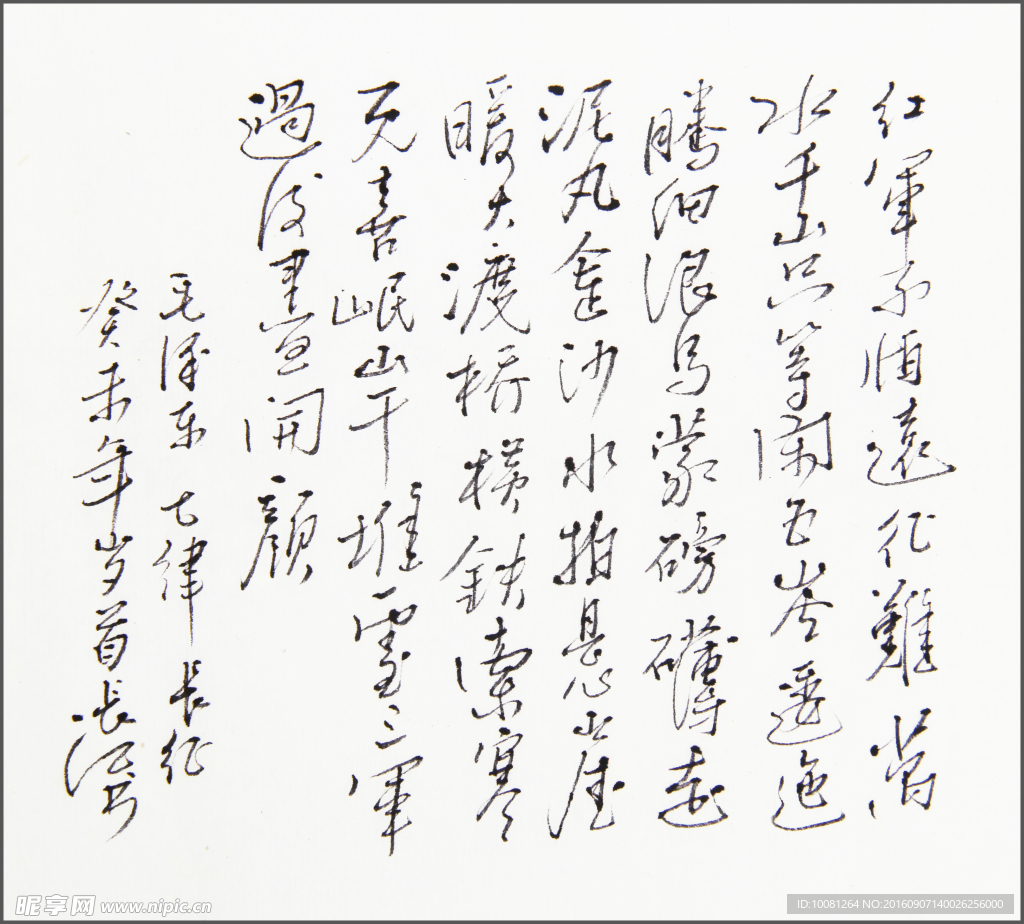 红軍不怕遠征難萬
水千山只等闲五岺逶迤
騰细浪烏蒙磅礴走
泥丸金沙水拍悬崖
暖大渡橋横鉄索寒
更喜岷山千堆雪三軍
過後盡開顔
毛泽东 七律 長征
癸未年岁首張
昵享网 www.nipic.cn
ID:10081264 NO:20160907140026256000